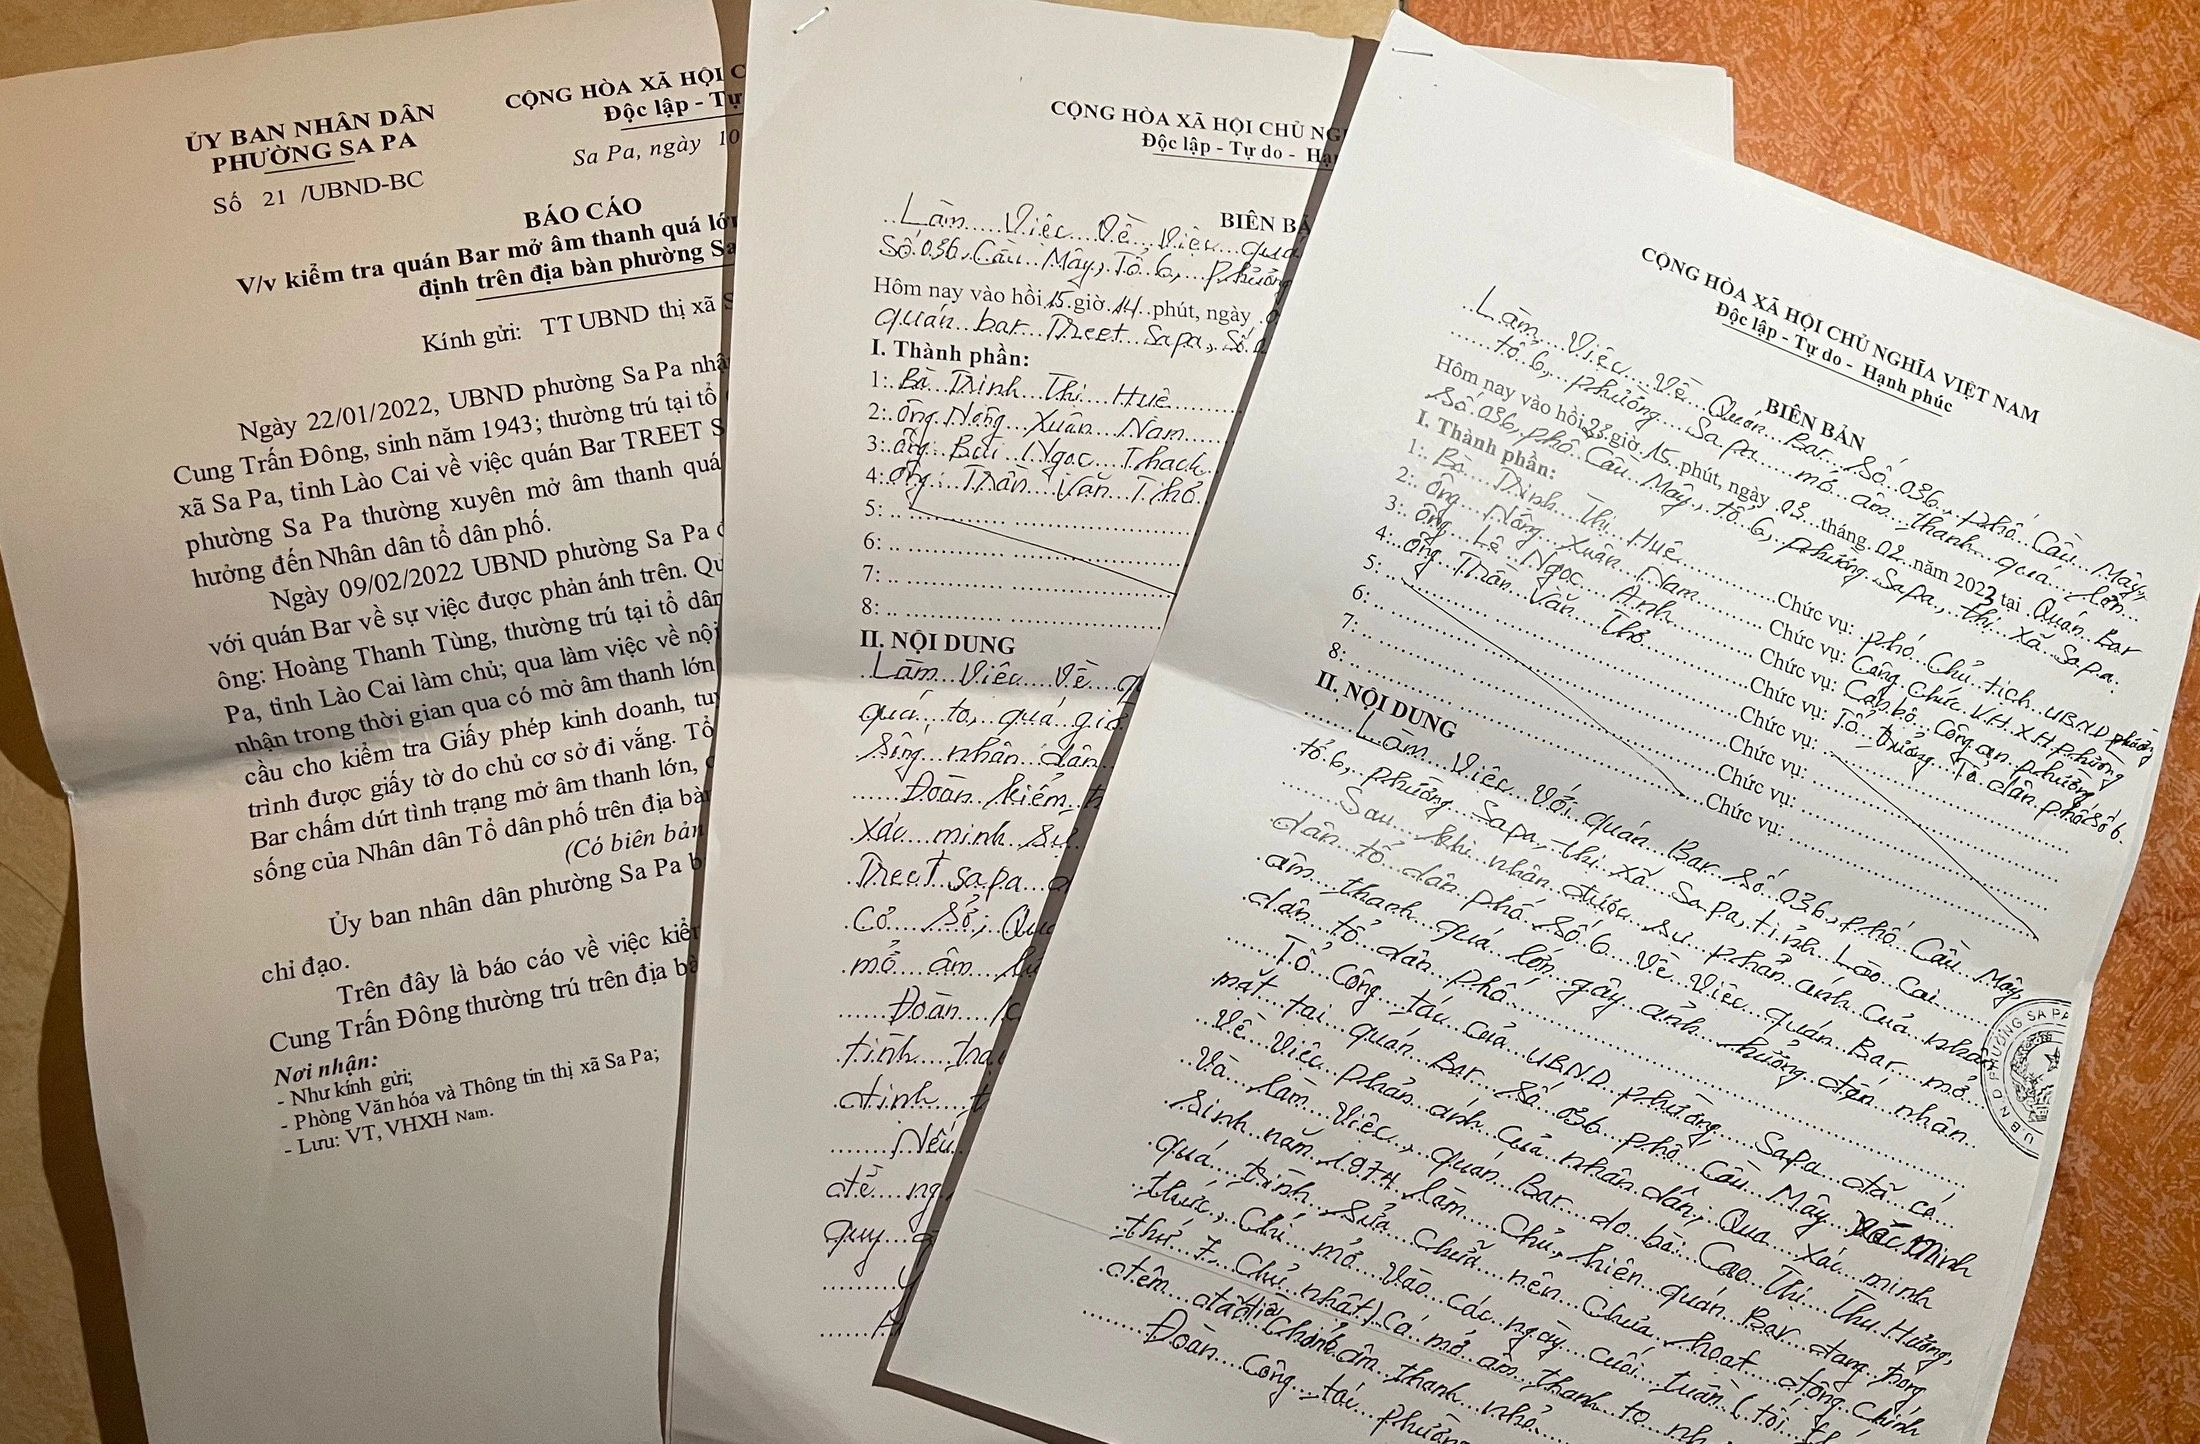 ỦY BAN NHÂN DÂN
PHƯỜNG SA PA
Số 21 /UBND-BC
CỘNG HÒA XÃ HỘI
Độc lập - Tự
Sa Pa, ngày 10
BÁO CÁO
V/v kiểm tra quán Bar mở âm thanh quá lớn
định trên địa bàn phường Sa
Kính gửi: TT UBND thị xã S
Ngày 22/01/2022, UBND phường Sa Pa nhận
Cung Trấn Đông, sinh năm 1943; thường trú tại tổ
xã Sa Pa, tỉnh Lào Cai về việc quán Bar TREET S
phường Sa Pa thường xuyên mở âm thanh quá
hưởng đến Nhân dân tổ dân phố.
Ngày 09/02/2022 UBND phường Sa Pa
với quán Bar về sự việc được phản ánh trên. Qu
ông: Hoàng Thanh Tùng, thường trú tại tổ dân
Pa, tỉnh Lào Cai làm chủ; qua làm việc về nội
nhận trong thời gian qua có mở âm thanh lớn
cầu cho kiểm tra Giấy phép kinh doanh, tuy
trình được giấy tờ do chủ cơ sở đi vắng. Tổ
Bar chấm dứt tình trạng mở âm thanh lớn,
sống của Nhân dân Tổ dân phố trên địa bàn
(Có biên bản
Ủy ban nhân dân phường Sa Pa b
chỉ đạo.
Trên đây là báo cáo về việc kiểm
Cung Trấn Đông thường trú trên địa bà
Nơi nhận:
- Như kính gửi;
- Phòng Văn hóa và Thông tin thị xã Sa Pa;
- Lưu: VT, VHXH Nam.
CỘNG HÒA XÃ HỘI CHỦ NG
Độc lập - Tự do - Hạ
BIÊN BẢ
Làm Việc Về Việc quá
Số 036, Cầu Mây, Tổ 6, phường
Hôm nay vào hồi 15 giờ 14 phút, ngày 0
quán bar Treet Sapa, Số 0
I. Thành phần:
1: Bà Trinh Thị Huê
2: Ông Nông Xuân Nam
3: Ông Bùi Ngọc Thach
4: Ông: Trần Văn Thỏ
5:
6:
7:
8:
II. NỘI DUNG
Làm Việc Về q
quá to, quá giờ
Sống nhân dân
Đoàn kiểm t
Xác minh Sự
Treet sapa
Cơ Sở; Qua
mở âm
Đoàn k
tình trạ
định t
Nếu
để ng
quy đ
CỘNG HÒA XÃ HỘI CHỦ NGHĨA VIỆT NAM
Độc lập - Tự do - Hạnh phúc
BIÊN BẢN
Làm Việc Về Quán Bar Số 036, phố Cầu Mây,
tổ 6, phường Sapa mở âm thanh quá lớn.
Hôm nay vào hồi 23 giờ 15 phút, ngày 03 tháng 02 năm 2023 tại Quán Bar
Số 036, phố Cầu Mây, tổ 6, phường Sapa, thị xã Sapa.
I. Thành phần:
1: Bà Trinh Thị Huê Chức vụ: phó Chủ tịch UBND phường
2: Ông Nông Xuân Nam Chức vụ: Công chức V.H.X.H phường
3: Ông Lê Ngọc Anh Chức vụ: Cán bộ Công an phường
4: Ông Trần Văn Thỏ Chức vụ: Tổ trưởng Tổ dân phố số 6.
5: Chức vụ:
6: Chức vụ:
7: Chức vụ:
8: Chức vụ:
II. NỘI DUNG
Làm Việc Với quán Bar Số 036, phố Cầu Mây,
tổ 6, phường Sapa, thị xã Sapa, tỉnh Lào Cai
Sau khi nhận được sự phản ánh của nhân
dân tổ dân phố số 6 Về Việc quán Bar mở
âm thanh quá lớn gây ảnh hưởng đến nhân
dân tổ dân phố
Tổ Công tác của UBND phường Sapa đã có
mặt tại quán Bar Số 036 phố Cầu Mây Xác Minh
Về Việc phản ánh của nhân dân; Qua Xác minh
Và làm Việc, quán Bar do bà: Cao Thị Thu Hương,
Sinh năm 1974 làm Chủ, hiện quán Bar đang trong
quá trình Sửa chữa nên Chưa hoạt động chính
thức, Chỉ mở Vào các ngày cuối tuần (tối
thứ 7, Chủ nhật) Có mở âm thanh to
đêm đã Chỉnh âm thanh nhỏ.
Đoàn Công tác phường
U.B.N.D PHƯỜNG SA PA